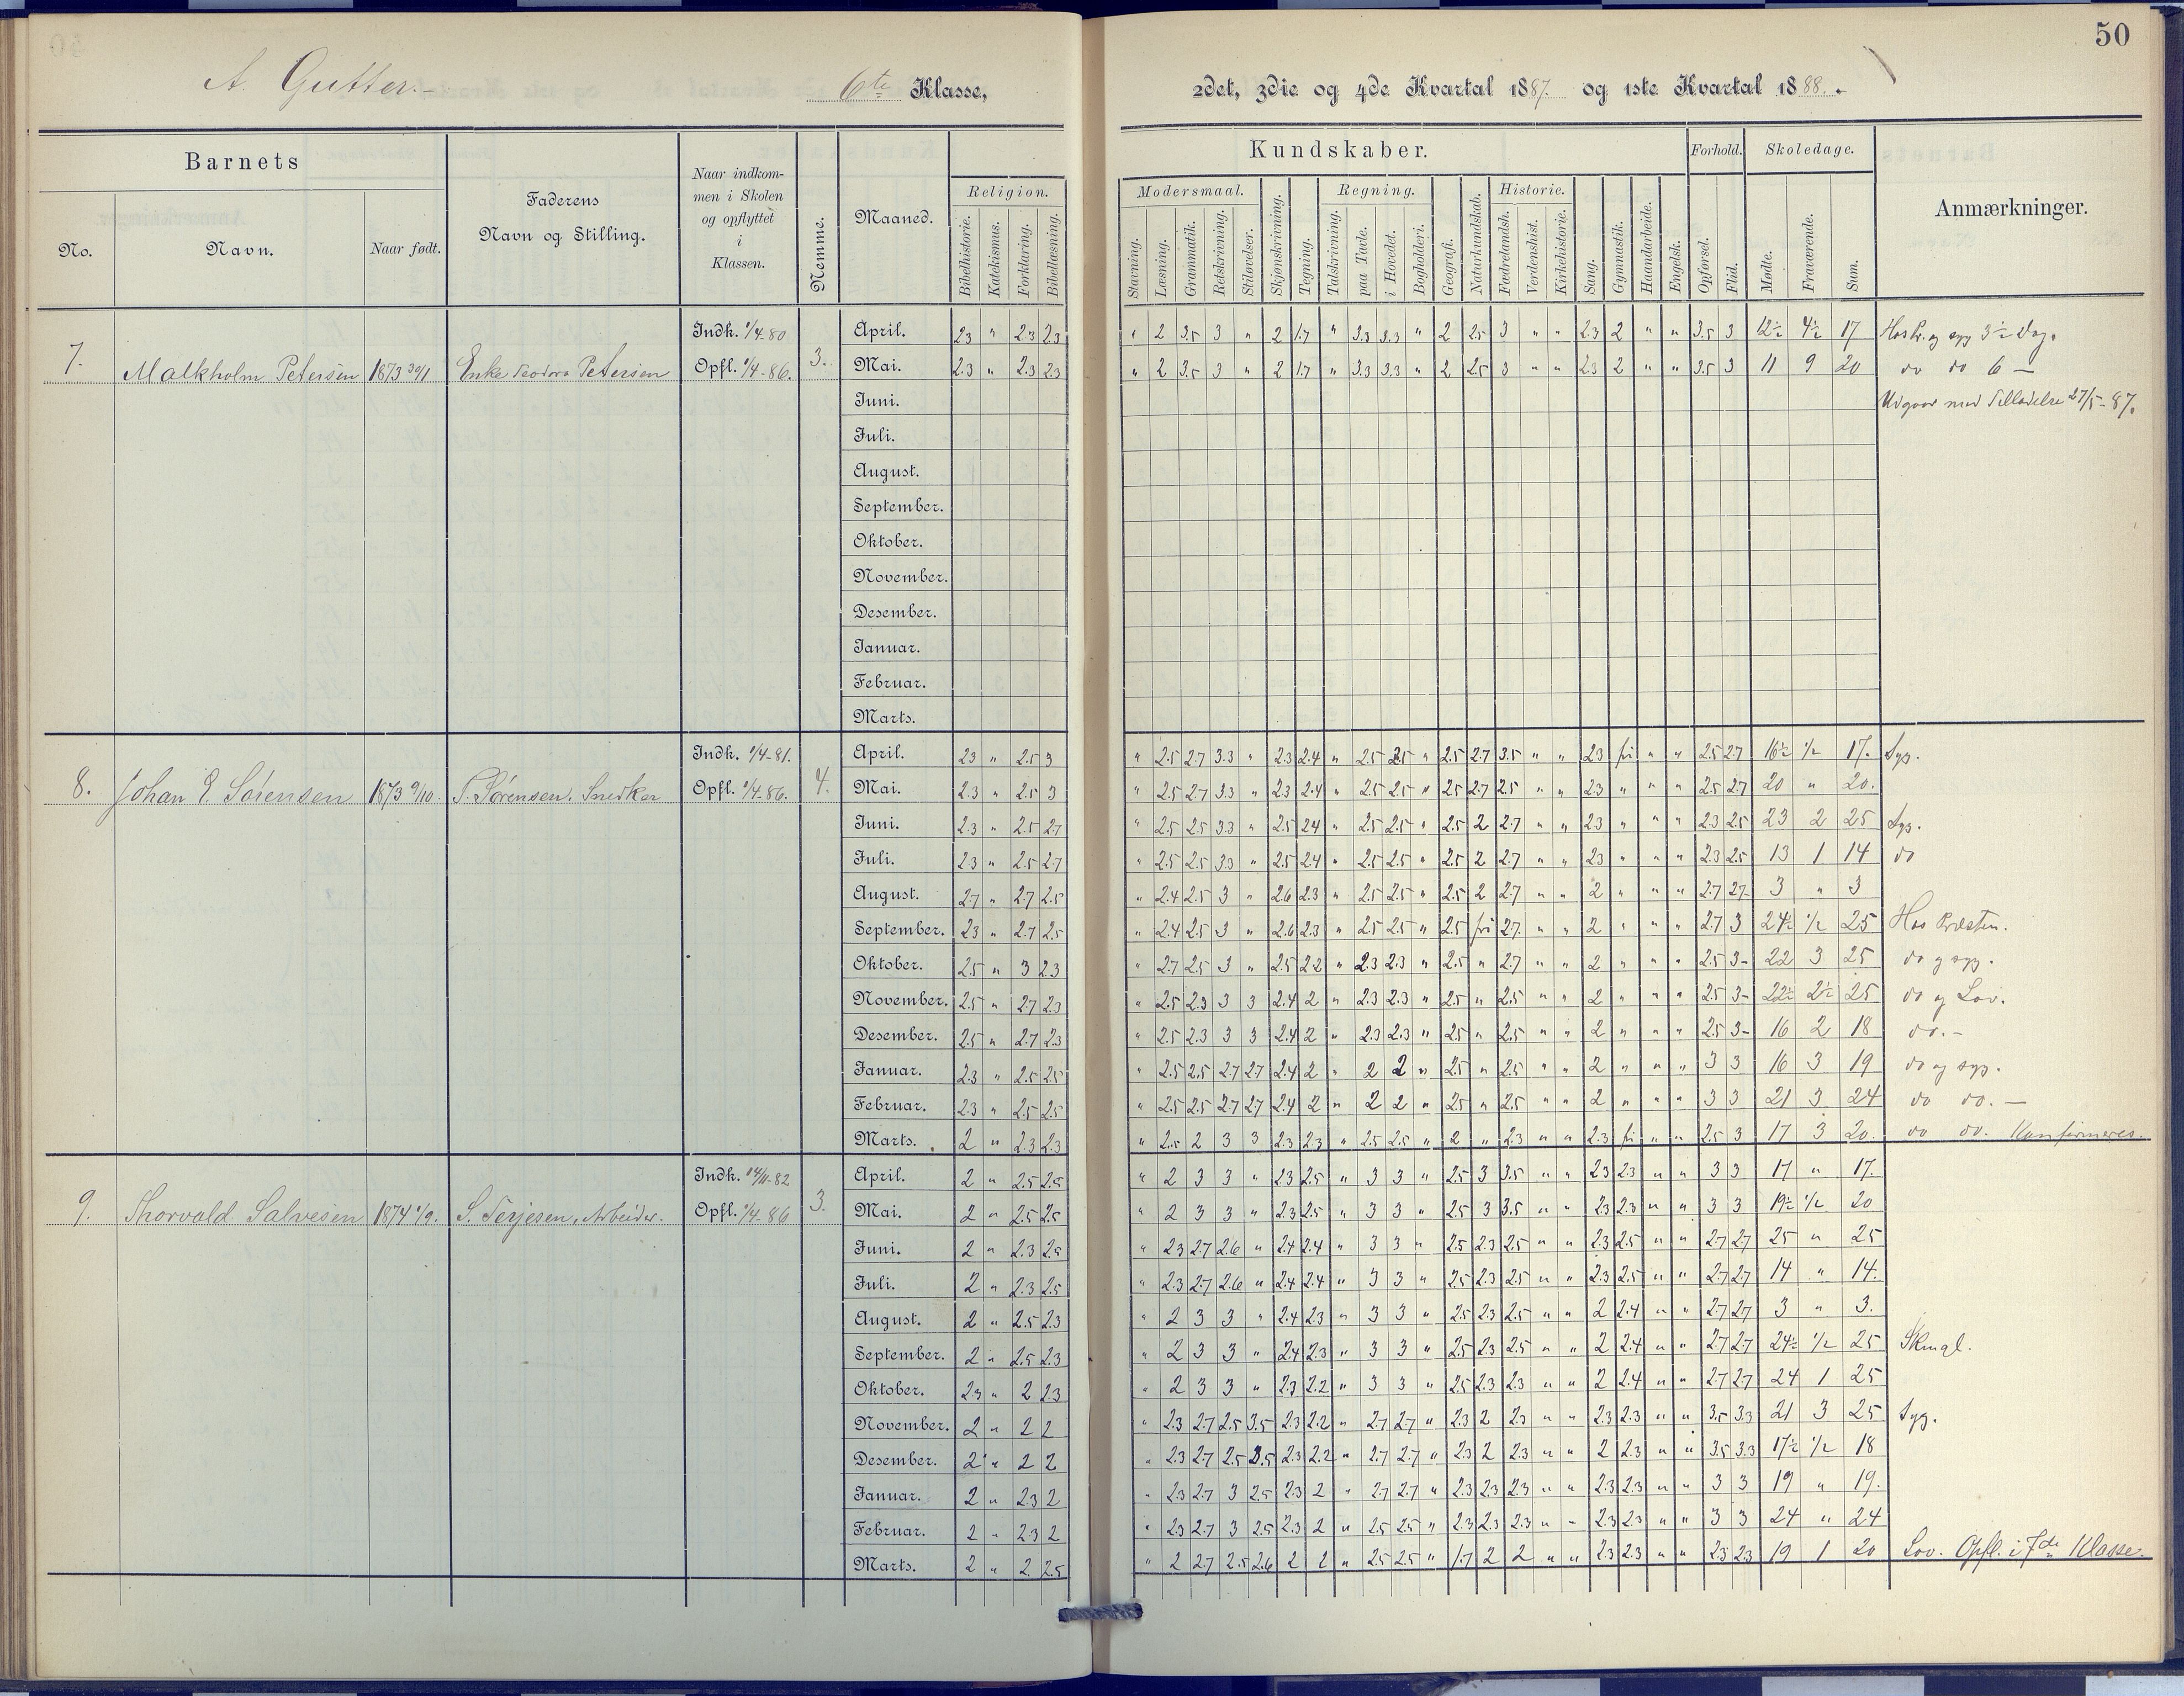 50
A. Gutter.- 6te Klasse, 2det, 3die og 4de Kvartal 1887. og 1ste Kvartal 1888..
Barnets
No.
Navn.
Naar født.
Faderens
Navn og Stilling.
Naar indkom-
men i Skolen
og opflyttet
i
Klassen.
Nemme.
Maaned.
Religion.
Bibelhistorie.
Katekismus.
Forklaring.
Bibellæsning.
Kundskaber.
Modersmaal.
Stavning.
Læsning.
Grammatik.
Retskrivning.
Stiløvelser.
Skjønskrivning.
Tegning.
Regning.
Talskrivning.
paa Tavle.
i Hovedet.
Bogholderi.
Geografi.
Naturkundskab.
Historie.
Fædrelandsh.
Verdenshist.
Kirkehistorie.
Sang.
Gymnastik.
Haandarbeide.
Engelsk.
Forhold.
Opførsel.
Flid.
Skoledage.
Mødte.
Fraværende.
Sum.
Anmærkninger.
7. Malkholm Petersen 1873 30/1 Enke Teodora Petersen Indk. 1/4-80 Opfl. 1/4-86. 3.
April. 2.3 " 2.3 2.3 " 2 3.5 3 " 2 1.7 " 3.3 3.3 " 2 2.5 3 " " 2.3 2 " " 3.5 3 12½ 4½ 17 Hos Pr. og syg 3½ Dag.
Mai. 2.3 " 2.3 2.3 " 2 3.5 3 " 2 1.7 " 3.3 3.3 " 2 2.5 3 " " 2.3 2 " " 3.5 3 11 9 20 do do 6 —
Juni. Udgaar med Tilladelse 27/5-87.
Juli.
August.
September.
Oktober.
November.
Desember.
Januar.
Februar.
Marts.
8. Johan E. Sørensen 1873 9/10. S. Sørensen, Snedker Indk. 1/4-81. Opfl. 1/4-86. 4.
April. 2.3 " 2.5 3 " 2.5 2.7 3.3 " 2.3 2.4 " 2.5 2.5 " 2.5 2.7 3.5 " " 2.3 fri " " 2.5 2.7 16½ 1/2 17. Syg.
Mai. 2.3 " 2.5 3 " 2.5 2.7 3.3 " 2.3 2.4 " 2.5 2.5 " 2.5 2.7 2.5 " " 2.3 " " " 2.5 2.7 20 " 20.
Juni. 2.3 " 2.5 2.7 " 2.5 2.5 3.3 " 2.5 2.4 " 2.5 2.5 " 2.5 2 2.7 " " 2.3 " " " 2.3 2.5 23 2 25 Syg.
Juli. 2.3 " 2.5 2.7 " 2.5 2.5 3.3 " 2.5 2.4 " 2.5 2.5 " 2.5 2 2.7 " " 2.3 " " " 2.3 2.5 13 1 14 do
August. 2.7 " 2.7 2.5 " 2.4 2.5 3 " 2.6 2.3 " 2.5 2.5 " 2.5 2 2.7 " " 2 " " " 2.7 2.7 3 " 3
September. 2.3 " 2.7 2.5 " 2.4 2.5 3 " 2.6 2.3 " 2.5 2.5 " 2.5 fri 2.7. " " 2 " " " 2.7 3 24½ 1/2 25 Hos Præsten.
Oktober. 2.5 " 3 2.3 " 2.7 2.5 3 " 2.5 2.2 " 2.3 2.3 " 2.5 " 2.7 " " 2 " " " 2.5 3- 22 3 25 do og syg.
November. 2.5 " 2.7 2.3 " 2.5 2.3 3 3 2.4 2 " 2.3 2.3 " 2.5 " 2.5 " " 2 " " " 2.5 3- 22½ 2½ 25 do og Lov.
Desember. 2.5 " 2.7 2.3 " 2.5 2.3 3 3 2.4 2 " 2.3 2.3 " 2.5 " 2.5 " " 2 " " " 2.5 3- 16 2 18 do.-
Januar. 2.3 " 2.5 2.5 " 2.5 2.5 2.7 2.7 2.4 2 " 2 2 " 2.5 " 2.5 " " 2 " " " 3 3 16 3 19 do og syg.
Februar. 2.3 " 2.5 2.5 " 2.5 2.5 2.7 2.7 2.4 2 " 2 2 " 2.5 " 2.5 " " 2 " " " 3 3 21 3 24 do do. —
Marts. 2 " 2.3 2.3 " 2.5 2 3 3 2.3 2.3 " 2.5 2.5 " 2 " 2.3 " " 2.3 fri " " 2.5 3 17 3 20. do do. Konfirmeres.
9. Thorvald Salvesen 1874 1/9. S. Terjesen, Arbeider. Indk. 14/11-82 Opfl. 1/4-86 3.
April. 2 " 2.5 2.5 " 2 3 3 " 2.3 2.5 " 3 3 " 2.5 3 3.5 " " 2.3 2.3 " " 3 3 17 " 17.
Mai. 2 " 2.5 2.5 " 2 3 3 " 2.3 2.5 " 3 3 " 2.5 3 3.5 " " 2.3 2.3 " " 3 3 19½ 1/2 20
Juni. 2 " 2.3 2.5 " 2.3 2.7 2.6 " 2.4 2.4 " 3 3 " 2.5 2.3 2.5 " " 2.3 2.5 " " 2.7 2.7 25 " 25
Juli. 2 " 2.3 2.5 " 2.3 2.7 2.6 " 2.4 2.4 " 3 3 " 2.5 2.3 2.5 " " 2.3 2.5 " " 2.7 2.7 14 " 14.
August. 2 " 2.5 2.3 " 2 3 3 " 2.4 2.3 " 3 3 " 2.5 2.3 2.5 " " 2 2.4 " " 2.7 2.7 3 " 3.
September. 2 " 2.5 2.3 " 2 3 3 " 2.4 2.3 " 3 3 " 2.5 2.3 2.5 " " 2 2.4 " " 2.7 2.7 24½ 1/2 25
Oktober. 2.3 " 2 2.3 " 2 3 3 " 2.3 2.2 " 3 3 " 2.5 2.3 2.3 " " 2 2.4 " " 2.7 2.7 24 1 25
November. 2 " 2 2 " 2.3 2.7 2.5 3.5 2.3 2.2 " 2.7 2.7 " 2.3 2 2.3 " " 2.3 2.3 " " 3.5 3.3 21 3 25 Syg.
Desember. 2 " 2 2 " 2.3 2.7 2.5 3.5 2.3 2.2 " 2.7 2.7 " 2.3 2 2.3 " " 2 2.3 " " 3.5 3.3 17½ 1/2 18
Januar. 2 " 2.3 2 " 2.3 2.7 3 2.5 2.3 2 " 2.7 2.7 " 2.3 2.3 2.3 " " 2.3 2.3 " " 3 3 19 " 19.
Februar. 2 " 2.3 2 " 2.3 2.7 3 2.5 2.3 2 " 2.5 2.5 " 2.3 2.3 2.3 " " 2.3 2.3 " " 3 3 24 " 24
Marts. 2 " 2 2.5 " 2 2.7 2.5 2.6 2 2 " 2.5 2.5 " 1.7 2 2 " " 2.3 2.3 " " 2.3 2.3 19 1 20 Lov. Opfl. i 7de Klasse.